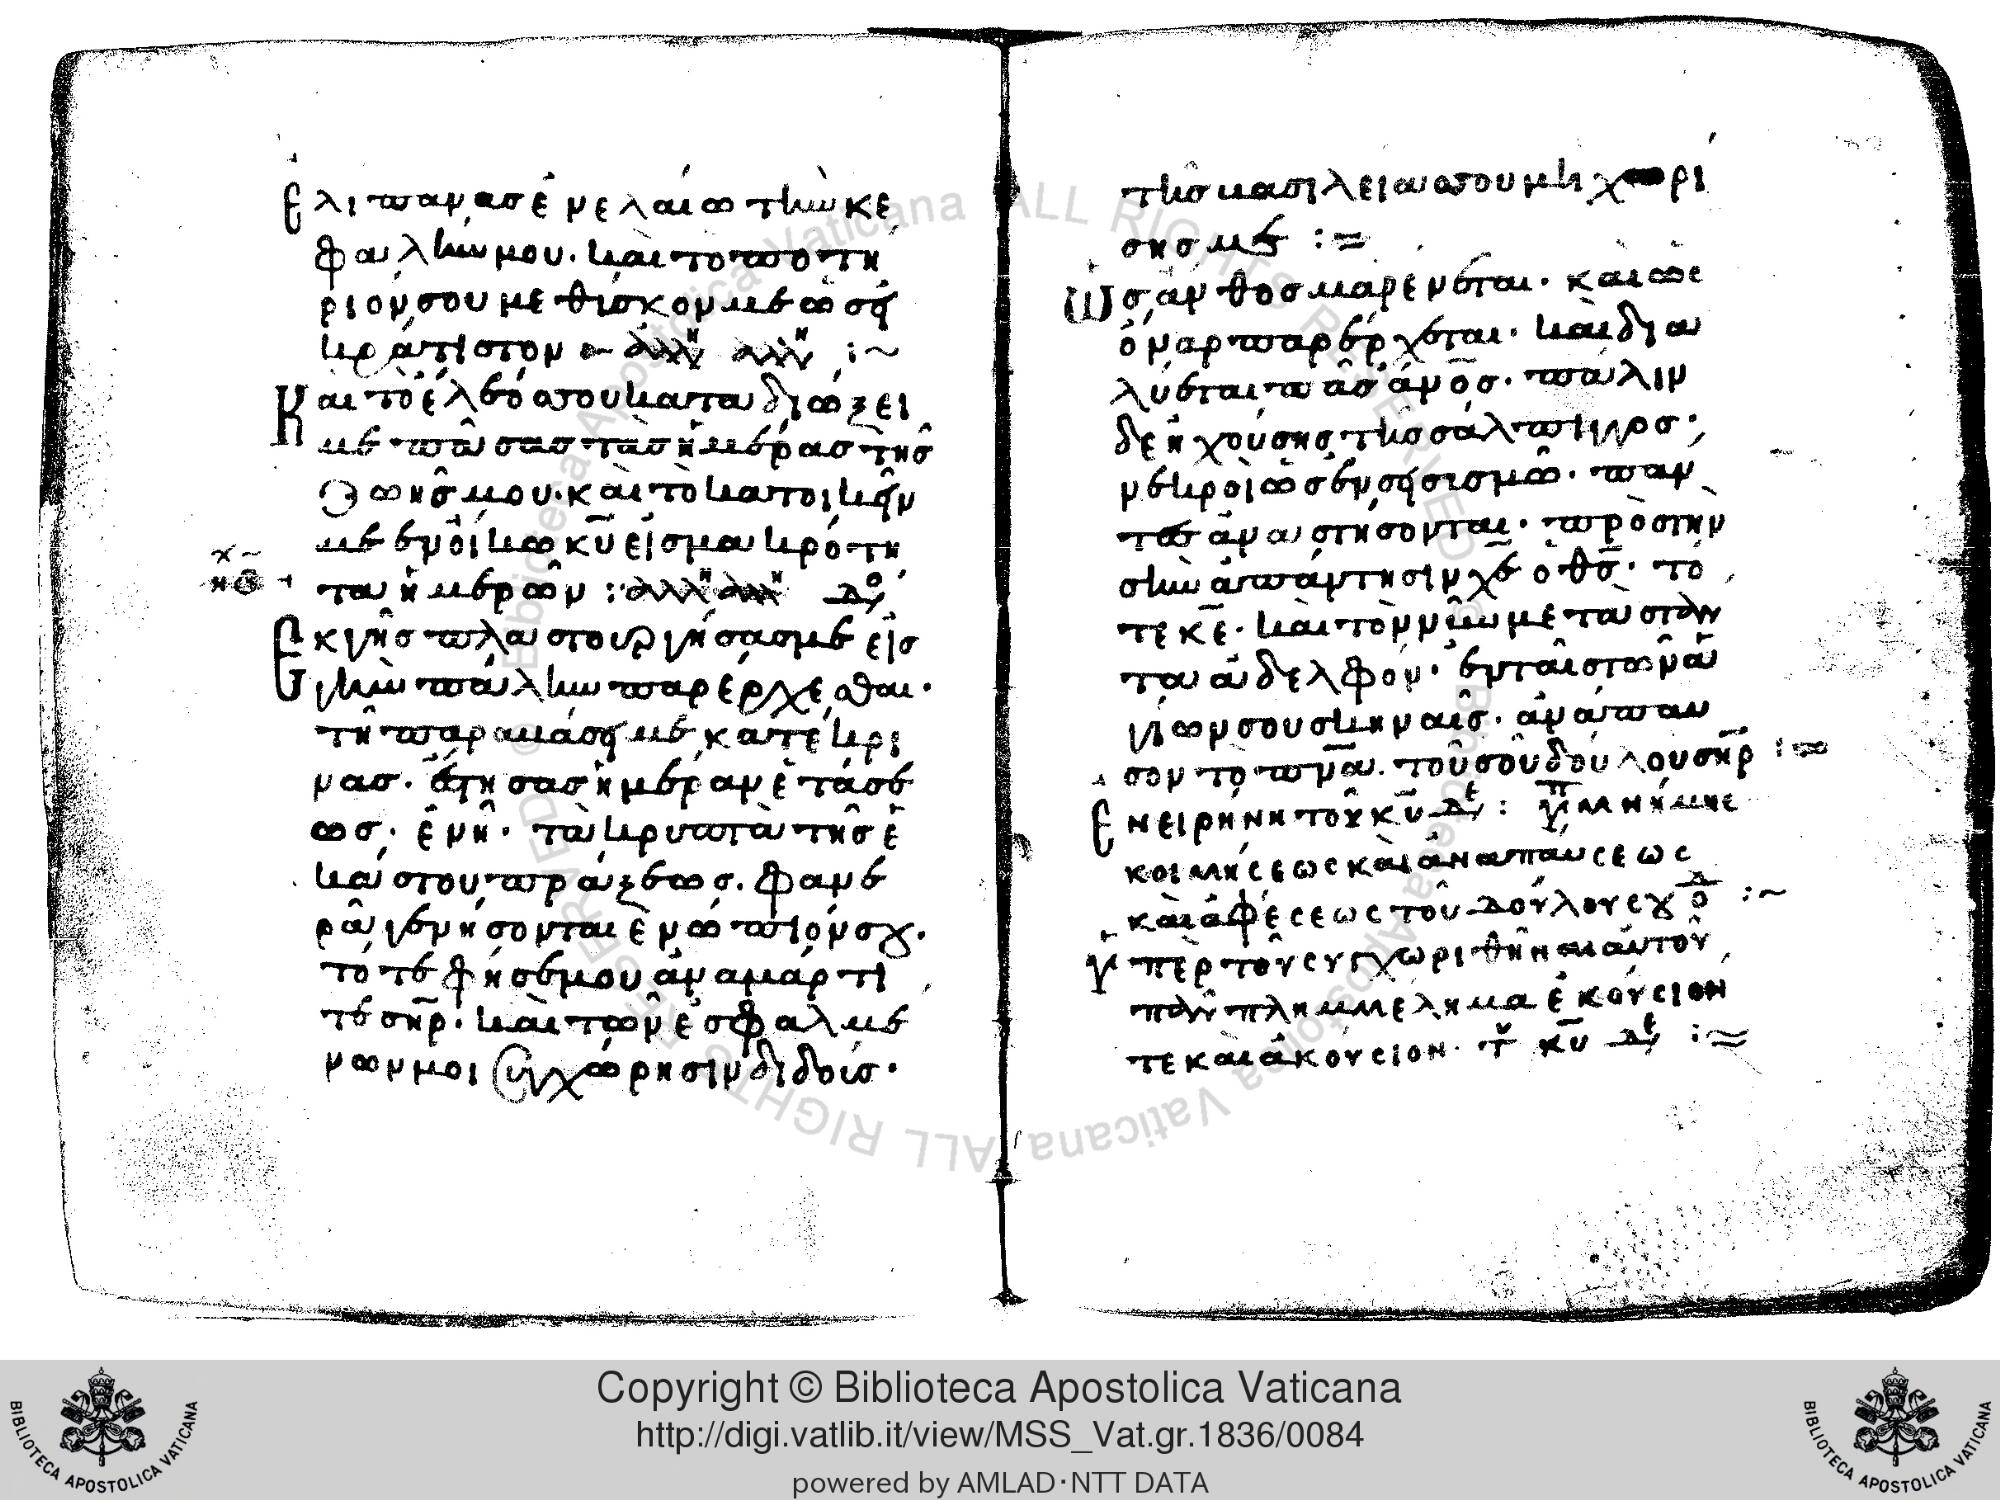 Ἐλίπανας ἐν ἐλαίω τὴν κε
φαλήν μου. καὶ τὸ ποτή
ριόν σου μεθύσκον με ὡσεὶ
κράτιστον
Καὶ τὸ ἔλεός σου καταδιώξει
με πάσας τὰς ἡμέρας τῆς
ζωῆς μου. καὶ τὸ κατοικεῖν
με ἐν οἴκω κυ εἰς μακρότη
τα ἡμερῶν :
Ἐκ γῆς πλαστουργήσας με εἰς
γῆν πάλιν παρέρχεσθαι.
τῆ παρακοάσει με κατέκρι
νας. ἔστησας ἡμέραν ἐτάσε
ως. ἐν ἧ. τὰ κρυπτὰ τῆς ἑ
κάστου πράξεως. φανε
ραὶ γενήσονται ἐνώπιόν σου.
τότε φῆσε μου ἀναμάρτι
τε σηρ. καὶ τῶν ἐσφαλμέ
νων μοι συγχώρησιν διδούς.
τῆς βασιλείας σου μὴ χωρί
σης με :=
Ὡς ἄνθος μαρένεται. καὶ ὡς
ὄναρ παρέρχεται. καὶ δια
λύεται πᾶς ἄνος. πάλιν
δὲ ἠχούσης τῆς σάλπιγγος.
νεκροὶ ὡς ἐν σεισμῶ. πάν
τες ἀναστήσονται. πρὸς τὴν
σὴν ἀπάντησιν χε ὁ θς. τό
τε κε. καὶ τὸν νῦν μετάστην
τα ἀδελφόν. ἐν ταῖς τῶν ἁ
γίων σου σκηναῖς. ἀνάπαυ
σον τὸ πνα. τοῦ σοῦ δούλου σηρ :=
Ἐν εἰρήνη τοῦ κυ δε : Ὑπ μνήμης
κοιμήσεως καὶ ἀναπαύσεως
καὶ ἀφέσεως τοῦ δούλου σου ὁ δ :~
Ὑπὲρ τοῦ συγχωριθῆναι αὐτοῦ
πᾶν πλημμέλημα ἑκούσιον
τε καὶ ἀκούσιον. τ κυ δε :=
Copyright © Biblioteca Apostolica Vaticana
http://digi.vatlib.it/view/MSS_Vat.gr.1836/0084
powered by AMLAD·NTT DATA
BIBLIOTECA APOSTOLICA VATICANA
BIBLIOTECA APOSTOLICA VATICANA